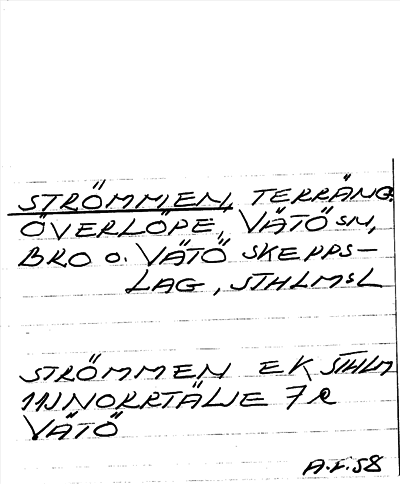 STRÖMMEN, TERRÄNG.
ÖVERLÖPE, VÄTÖ SN,
BRO O. VÄTÖ SKEPPS-
LAG, STHLMSL
STRÖMMEN EK STHLM
11J NORRTÄLJE 7e
VÄTÖ
A.F.58